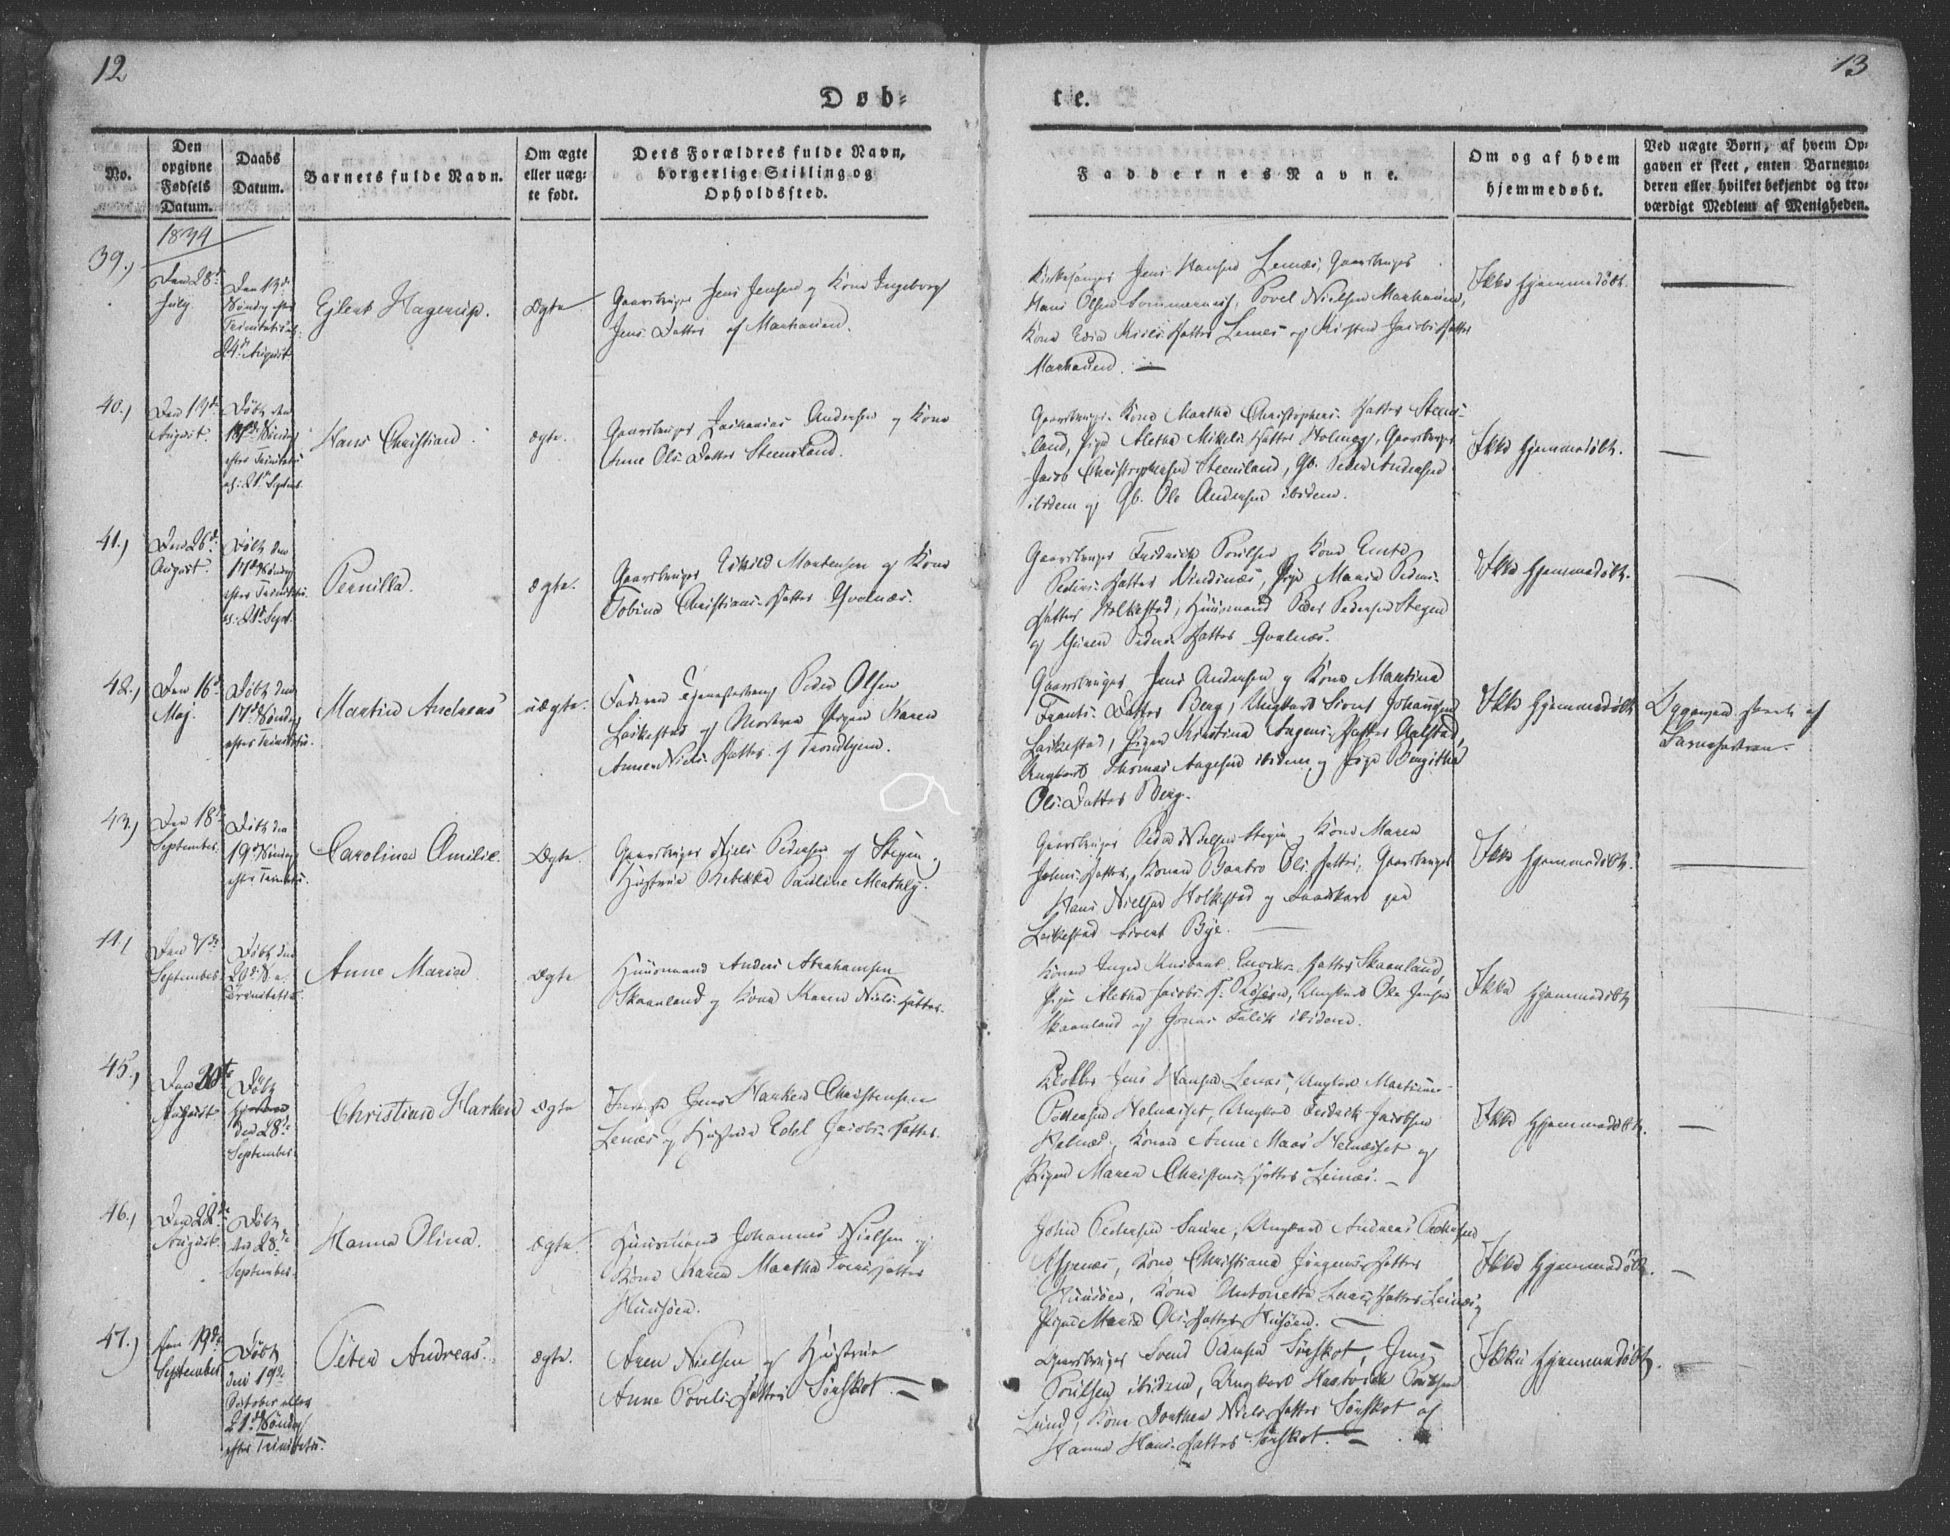 12
13
Døb=
te.
No.
Den opgivne Fødsels Datum.
Daabs Datum.
Barnets fulde Navn.
Om ægte eller uæg-te født.
Dets Forældres fulde Navn, borgerlige Stilling og Opholdssted.
Faddernes Navne.
Om og af hvem hjemmedøbt.
Ved uægte Børn, af hvem Op-gaven er skeet, enten Barnemo-deren eller hvilket bekjendt og tro-værdigt Medlem af Menigheden.
1834
39.)
Den 28de
July
Søndag efter
Trinitatis
24de August
Ejlert Hagerup.
Ægte
Gaardbruger Jens Jensen og Kone Ingeborg
Jens Datter af Manhausen.
Kirkesanger Jens Hansen Leinæs, Gaardbruger
Hans Olsen Sommernæs, Povel Nielsen Manhausen,
Datter Leines og Kirsten Jacobs Datter
Manhausen.
Ikke hjemmedøbt.
40.)
Den 13de
August.
Døbt den
Søndag
efter Trinitatis
21de Septbr.
Hans Christian
ægte.
Gaardbruger Zacharias Andersen og Kone
Anne Ols Datter Steensland.
Gaardbruger Kone Martha Christophers Datter Steens-
land, Pige Aletha Mikels Datter Holmog, Gaardbruger
Jacob Christophersen Steensland, Gb. Peder Andersen
ibidem og Gb. Ole Andersen ibidem.
Ikke hjemmedøbt.
41.)
Den 26de
August.
Døbt den
17de Søndag
efter Trinitatis
21de Sept.
Pernilla.
ægte.
Gaardbruger Eskild Mortensen og Kone
Tobine Christians Datter Qvalnæs.
Gaardbruger Fridrich Poulsen Kone
Peders Datter Vindenæs, Pige Maria Peders-
Datter Holkestad, Huusmand Peder Pedersen Stegen
og Peders Datter Qvalnæs.
Ikke hjemmedøbt.
42.)
Den 16de
Maj.
Døbt den
17de Søndag
efter Trinitatis.
Martin Andreas
uægte.
Faderen Tjenestedreng Peder Olsen
Laskestad og Moderen Pigen Karen
Anna Niels Datter af Trondhjem.
Gaardbruger Jens Andersen og Kone Martina
Frants Datter Berg, Ungkarl Sivert Johansen
Laskestad, Pigen Kristina Aagens Datter Aalstad,
Ungkarl Thomas Aagesen ibidem og Pige Bergitha
Ols Datter Berg.
Ikke hjemmedøbt
Opgaven skeet af
Barnefaderen.
43.)
Den 18de
September.
Døbt den
19de Søndag
efter Trinitatis.
Caroline Amilie.
Ægte.
Gaardbruger Niels Pedersen af Stegen og
Hustrue Rebekka Pauline Meathly.
Gaardbruger Peder Nielsen Stegen Kone Maren
Johns Datter, Konen Ols Datter, Gaardbruger
Hans Nielsen Holkestad og paa
Laskestad Sivert Bye.
Ikke hjemmedøbt.
44.)
September
Døbt den
20de S. e.
Trinitatis.
Anne Maria
ægte
Huusmand Anders Abrahamsen
Skaanland og Kone Maren Niels Datter.
Konen Datter Skaanland,
Pige Aletha Jacobs D. Ungkarl Ole Jensen
Skaanland og Jonas Falch ibidem.
Ikke hjemmedøbt
45.)
Den 20de
August
Døbt
den 28de
September.
Christian Harken
ægte
Jens Harken Christensen
Lenæs og Hustrue Edel Jacobs Datter.
Klokker Jens Hansen Lenæs, Ungkarl
Pedersen Helnæsset, Ungkarl Fridrich Jacobsen
Konen Anne Maas Helnæsset og
Pigen Maren Christens Datter Leinæs.
Ikke hjemmedøbt.
46.)
Den 22de
August.
Døbt
den 28de
September.
Hanna Olina.
ægte.
Huusmand Johannes Nielsen og
Kone Karen Martha Datter
Huusøen.
John Pedersen Ungkarl Andreas Pedersen
Kone Christiana Jørgens Datter
Huusøen, Kone Antonetta Datter Leines
Pige Maria Ols Datter Husøen.
Ikke hjemmedøbt.
47.)
Den 19de
September
Døbt
den 19de
October eller
21de Søndag
efter Trinitatis.
Peter Andreas.
ægte.
Aren Nielsen og Hustrue
Anne Povels Datter Sørskot.
Gaardbruger Svend Pedersen Sørskot, Jens
Poulsen ibidem, Ungkarl Hartvich Poulsen
Lund, Kone Dorthea Niels Datter Sørskot og
Hanna Hans Datter Sørskot.
Ikke hjemmedøbt.